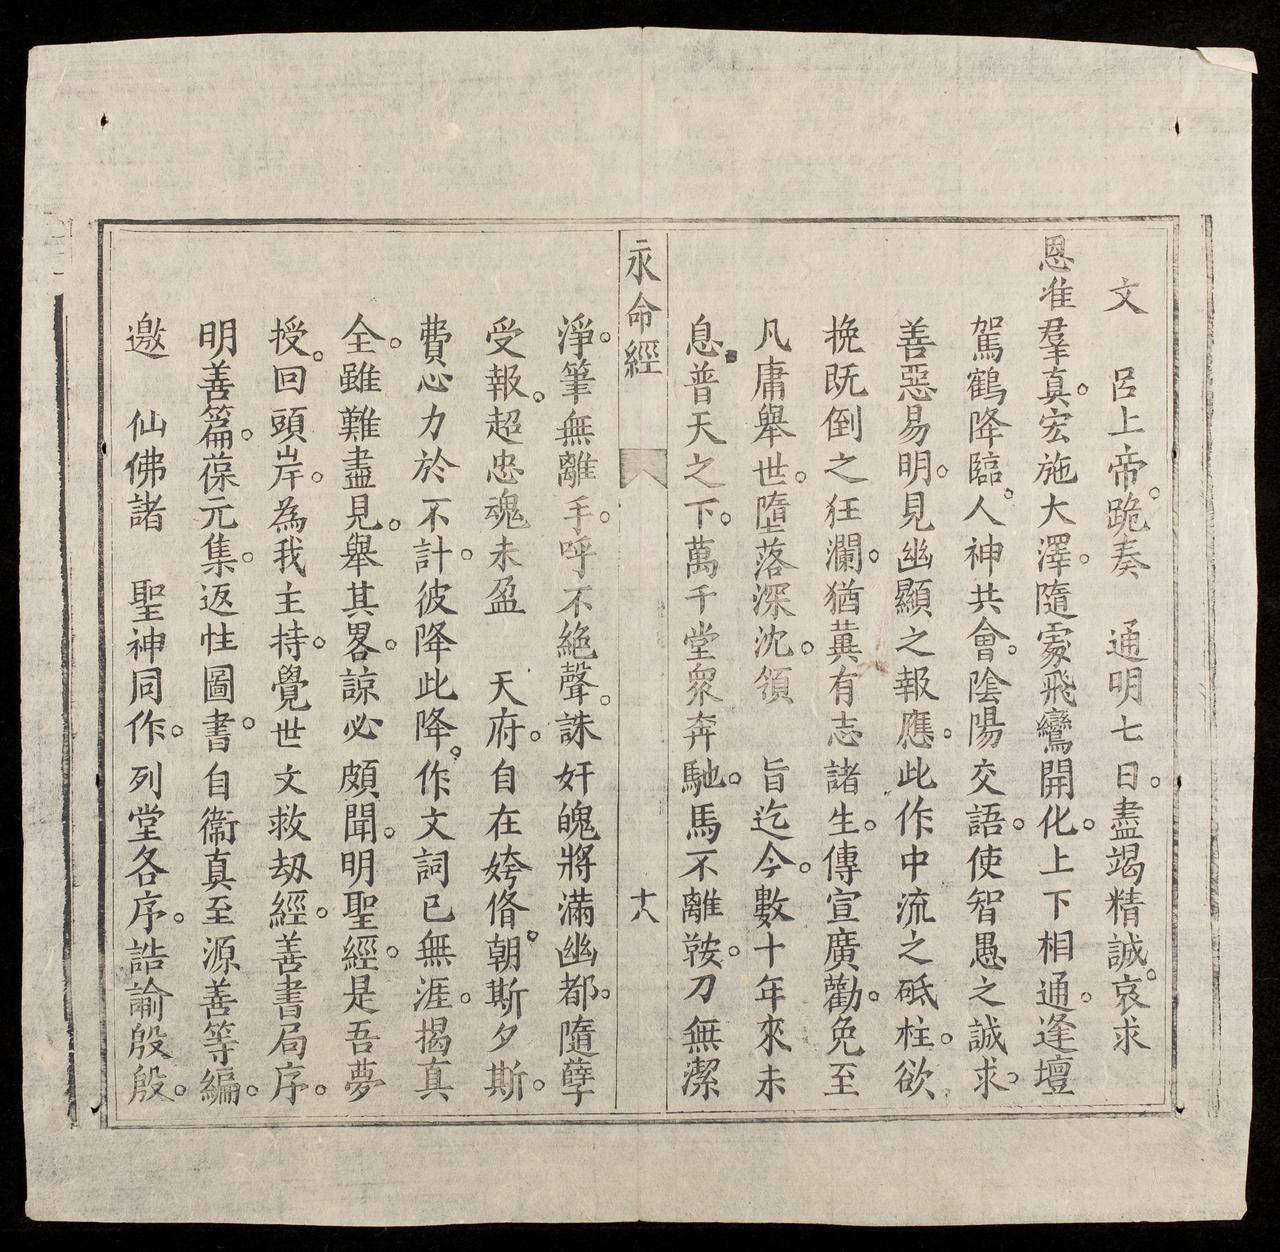 文 呂上帝。跪奏 通明七日。盡竭精誠。哀求
恩准羣真。宏施大澤。隨處飛鸞開化。上下相通。逢壇
駕鶴降臨。人神共會。陰陽交語。使智愚之誠求。
善惡易明。見幽顯之報應。此作中流之砥柱。欲
挽既倒之狂瀾。猶冀有志諸生。傳宣廣勸。免至
凡庸舉世。墮落深沈。領 旨迄今。數十年來未
息。普天之下。萬千堂眾奔馳。馬不離鞍。刀無潔
永命經
十八
淨。筆無離手。呼不絕聲。誅奸魄將滿幽都。隨孽
受報。超忠魂未盈 天府。自在姱脩。朝斯夕斯。
費心力於不計。彼降此降。作文詞已無涯。揭真
全。雖難盡見。舉其畧。諒必頗聞。明聖經。是吾夢
授。回頭岸。為我主持。覺世文救劫經。善書局序。
明善篇。葆元集。返性圖書。自衞真至源善等編。
邀 仙佛諸 聖神同作。列堂各序。誥諭殷殷。